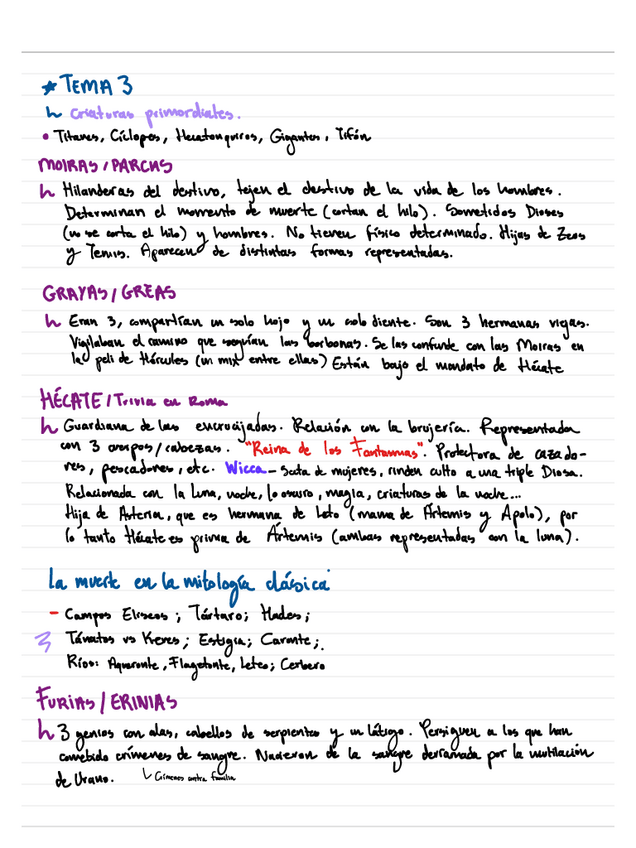 ★ TEMA 3
↳ Criaturas primordiales.
• Titanes, Cíclopes, Hecatonquiros, Gigantes, Tifón
MOIRAS / PARCAS
↳ Hilanderas del destino, tejen el destino de la vida de los hombres.
Determinan el momento de muerte (cortan el hilo). Sometidos Dioses
(no se corta el hilo) y hombres. No tienen físico determinado. Hijas de Zeus
y Temis. Aparecen de distintas formas representadas.
GRAYAS / GREAS
↳ Eran 3, compartían un solo hojo y un solo diente. Son 3 hermanas viejas.
Vigilaban el camino que seguían las Gorgonas. Se las confunde con las Moiras en
la peli de Hércules (un mix entre ellas) Están bajo el mandato de Hécate
HÉCATE / Trivia en Roma
↳ Guardiana de las encrucijadas. Relación con la brujería. Representada
con 3 cuerpos/cabezas. "Reina de los Fantasmas". Protectora de cazado-
res, pescadores, etc. Wicca - Secta de mujeres, rinden culto a una triple Diosa.
Relacionada con la luna, noche, lo oscuro, magia, criaturas de la noche...
Hija de Asteria, que es hermana de Leto (mama de Artemis y Apolo), por
lo tanto Hécate es prima de Ártemis (ambas representadas con la luna).
La muerte en la mitología clásica
- Campos Elíseos ; Tártaro; Hades;
Tánatos vs Keres ; Estigia; Caronte;
Ríos: Aqueronte, Flagetonte, Leteo; Cerbero
FURIAS / ERINIAS
↳ 3 genios con alas, cabellos de serpientes y un látigo. Persiguen a los que han
cometido crímenes de sangre. Nacieron de la sangre derramada por la mutilación
de Urano. ↳ Crímenes contra familia